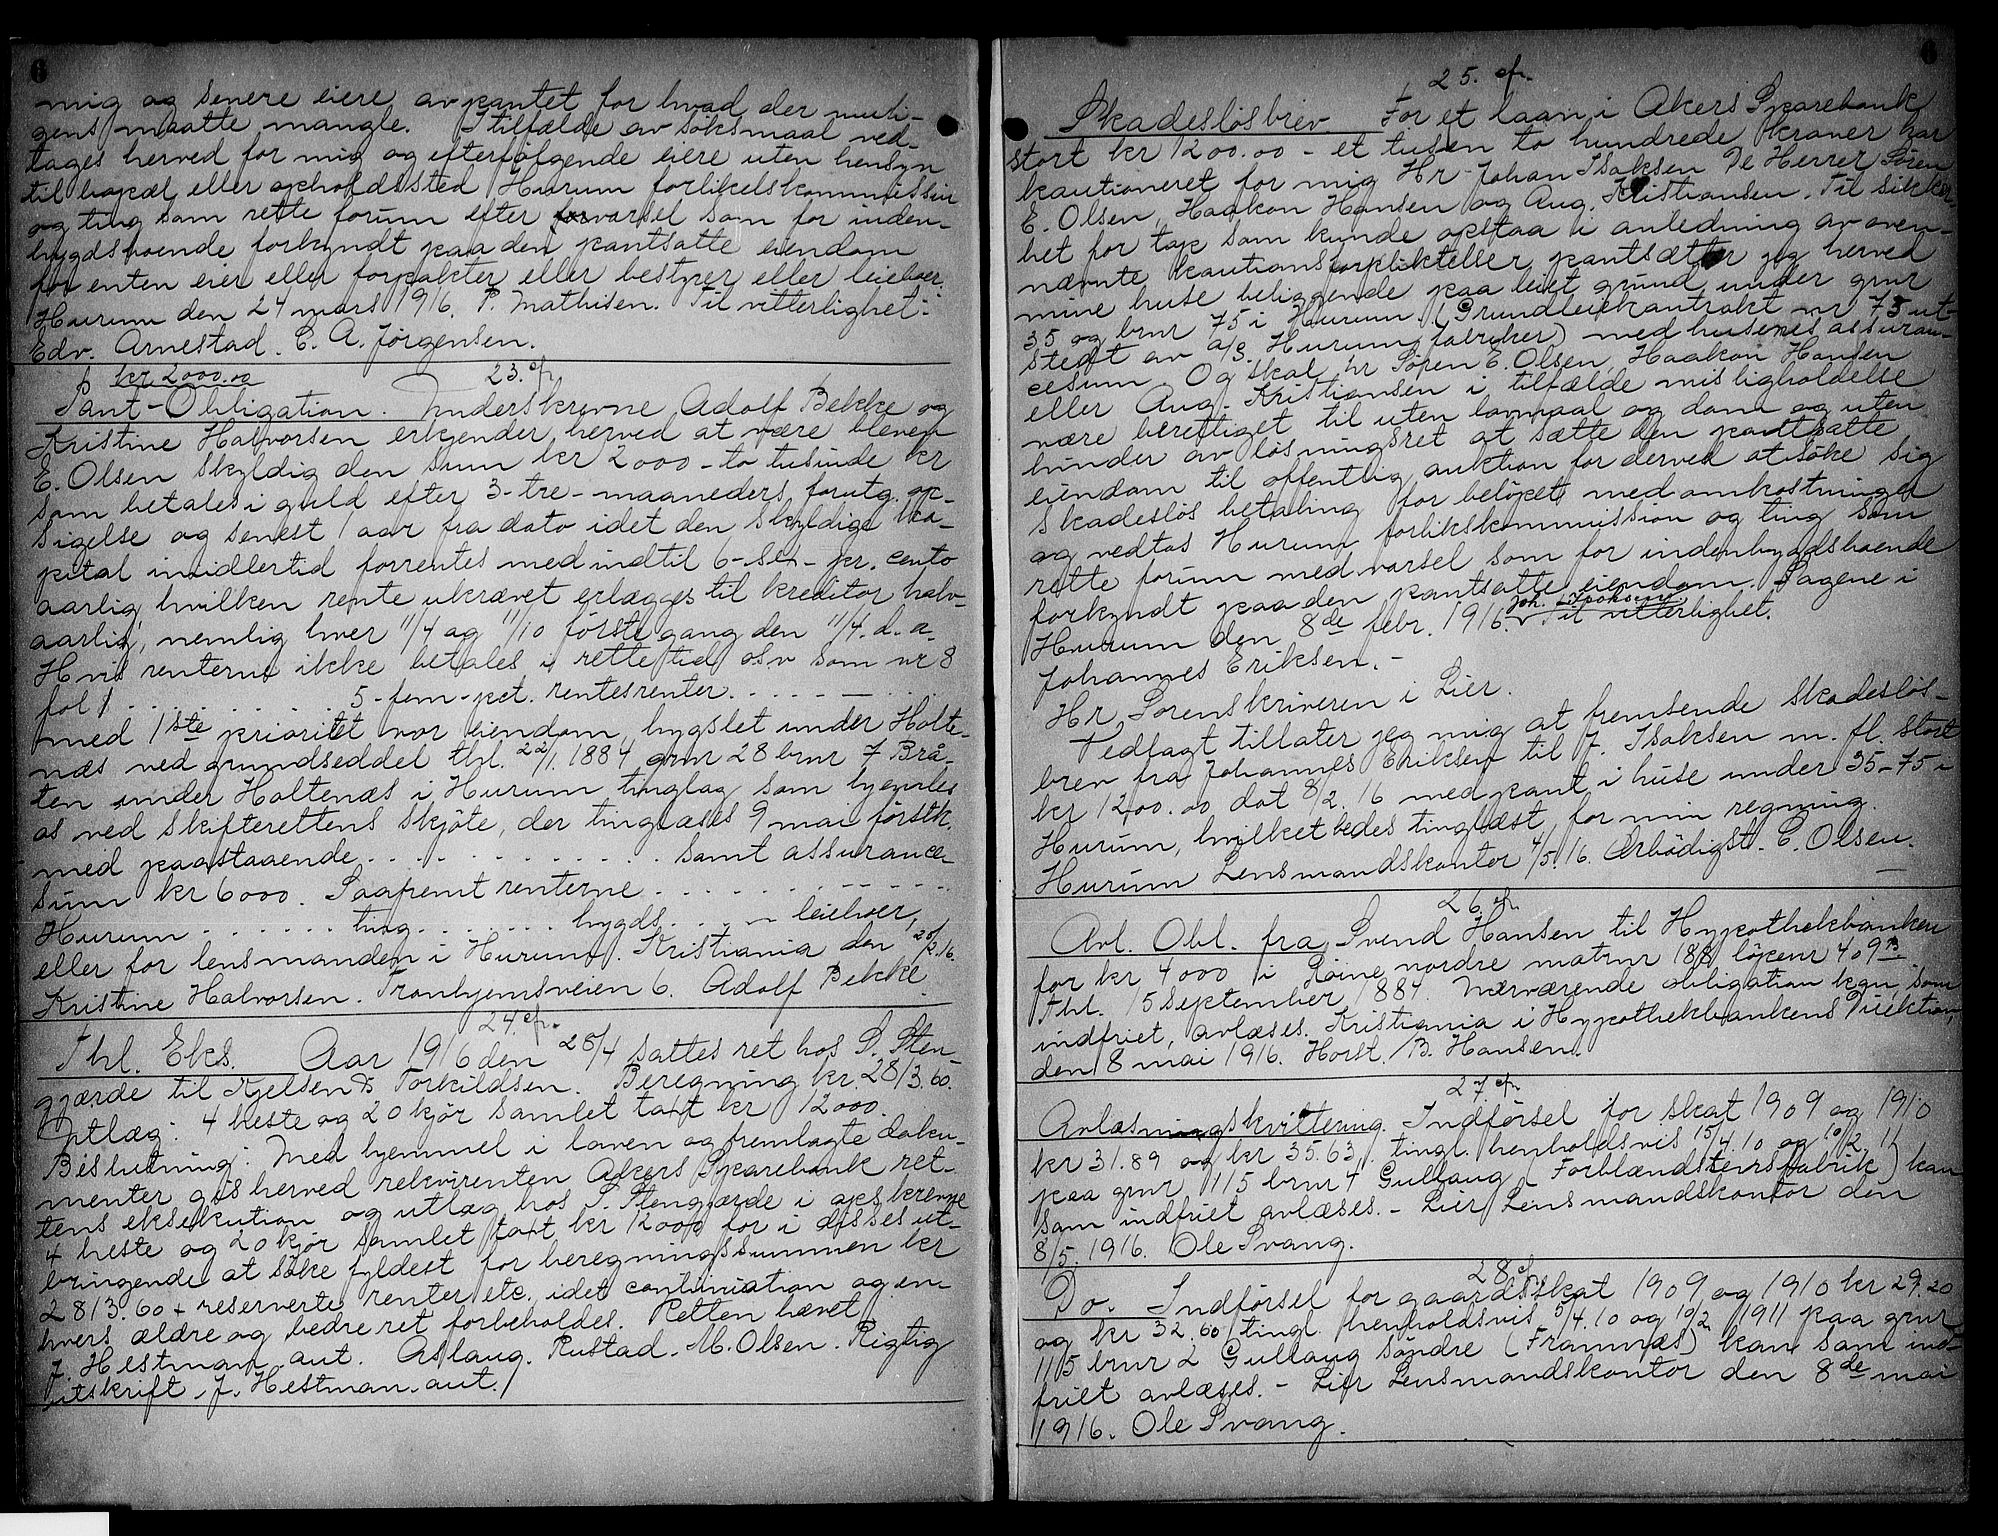 6
mig og senere eiere av pantet for hvad der muli-
gens maatte mangle. I tilfælde av söksmaal ved-
tages herved for mig og efterfölgende eiere uten hensyn
til bopæl eller opholdssted Hurum forlikelseskommission
og ting som rette forum efter forvarsel som for inden-
bygdsboende forkyndt paa den pantsatte eiendom
for enten eier eller forpakter eller bestyrer eller leieboer.
Hurum den 24 mars 1916. P. Mathisen. Til vitterlighet:
Edv. Arnestad. E. A. Jörgensen.
kr 2000.00
23.
Pant-Obligation. Underskrevne Adolf Bekke og
Kristine Halvorsen erkjender herved at være bleven
E. Olsen skyldig den sum kr 2000 - to tusinde kr
som betales i guld efter 3-tre-maaneders forutg. op-
sigelse og senest 1 aar fra dato idet den skyldige ka-
pital imidlertid forrentes med indtil 6-seks- pr. cento
aarlig, hvilken rente ukrævet erlægges til kreditor halv-
aarlig, nemlig hver 11/4 og 11/10 förste gang den 11/4. d. a.
Hvis renterne ikke betales i rette tid osv som nr 8
fol 1 . . . . . 5-fem-pct. rentesrenter. . . . . — . . .
med 1ste prioritet vor eiendom, bygslet under Holte-
næs ved grundseddel tbl. 22/1. 1884 gnr 28 bnr 7 Brå-
ten under Holtenæs i Hurum tinglag som hjemles
os ved skifterettens skjöte, der tinglæses 9 mai förstk.
med paastaaende . . . . . . . . . . . . samt assurance-
sum kr 6000. Saafremt renterne . . . . . . . . . . . .
Hurum . . . . . . ting . . . . . . bygds. . . . - leieboer,
eller for lensmanden i Hurum. Kristiania den 28/2.16.
Kristine Halvorsen. Tronhjemsveien 6. Adolf Bekke.
24.
Tbl. Eks. Aar 1916 den 28/4 sattes ret hos S. Sten-
gjærde til Kjelsen & Torkildsen. Beregning kr. 2813.60.
Utlæg: 4 heste og 20 kjör samlet taxt kr 12000.
Beslutning: Med hjemmel i loven og fremlagte doku-
menter gis herved rekvirenten Akers Sparebank ret-
tens eksekution og utlæg hos S. Stengjærde i opskrevne
4 heste og 20 kjör samlet taxt kr 12000 for i disses ut-
bringende at söke fyldest for beregningssummen kr
2813.60 + reserverte renter etc. idet continuation og en-
hvers ældre og bedre ret forbeholdes. Retten hævet
J. Hestman. aut. Aslaug. Rustad. M. Olsen. Rigtig
utskrift. J. Hestman. aut./
6
25.
Skadeslösbrev. For et laan i Akers Sparebank
stort kr 1200.00 - et tusen to hundrede kroner har
kautioneret for mig Hr. Johan Isaksen De Herrer Sören
E. Olsen, Haakon Hansen og Aug. Kristiansen. Til sikker-
het for tap som kunde opstaa i anledning av oven-
nævnte kautionsforpliktelser pantsætter jeg herved
mine huse beliggende paa leiet grund under gnr
35 og bnr 75 i Hurum. (Grundleiekontrakt nr 75 ut-
stedt av a/s Hurum fabriker) med husenes assuran-
cesum. Og skal hr Sören E. Olsen, Haakon Hansen
eller Aug. Kristiansen i tilfælde misligholdelse
være berettiget til uten lovmaal og dom og uten
hinder av lösningsret at sætte den pantsatte
eiendom til offentlig auktion for derved at söke sig
skadeslös betaling for belöpet med omkostninger
og vedtas Hurum forlikskommission og ting som
rette forum med varsel som for indenbygdsboende
forkyndt paa den pantsatte eiendom. Sagene i
Hurum den 8de febr. 1916. Joh. Isaksen Til vitterlighet.
Johannes Eriksen. -
Hr. Sorenskriveren i Lier.
Vedlagt tillater jeg mig at fremsende skadeslös-
brev fra Johannes Eriksen til J. Isaksen m. fl. stort
kr 1200.00 dat 8/2. 16 med pant i huse under 35-75 i
Hurum, hvilket bedes tinglæst for min regning.
Hurum Lensmandskontor 4/5. 16. Ærbödigst. E. Olsen.
26.
Avl. Obl. fra Svend Hansen til Hypothekbanken
for kr 4000 i Röine nordre matrnr 188 löpenr 409
Tbl. 15 September 1884. Nærværende obligation kan, som
indfriet, avlæses. Kristiania i Hypothekbankens Direktion,
den 8 mai 1916. Horst. /B. Hansen.
27.
Avlæsningskvittering. Indförsel for skat 1909 og 1910
kr 31.89 og kr 35.63, tingl. henholdsvis 15/4.10 og 10/2. 11
paa gnr 115 bnr 4 Gullaug (Forblændstensfabrik) kan
som indfriet avlæses. - Lier Lensmandskontor den
8/5. 1916. Ole Svang.
28
Do. Indförsel for gaardsskat 1909 og 1910 kr 29.20
og kr 32.60 tingl. henholdsvis 5/4.10 og 10/2 1911 paa gnr
115 bnr 2 Gullaug söndre (Framnæs) kan som ind-
friet avlæses. - Lier Lensmandskontor den 8de mai
1916. Ole Svang.